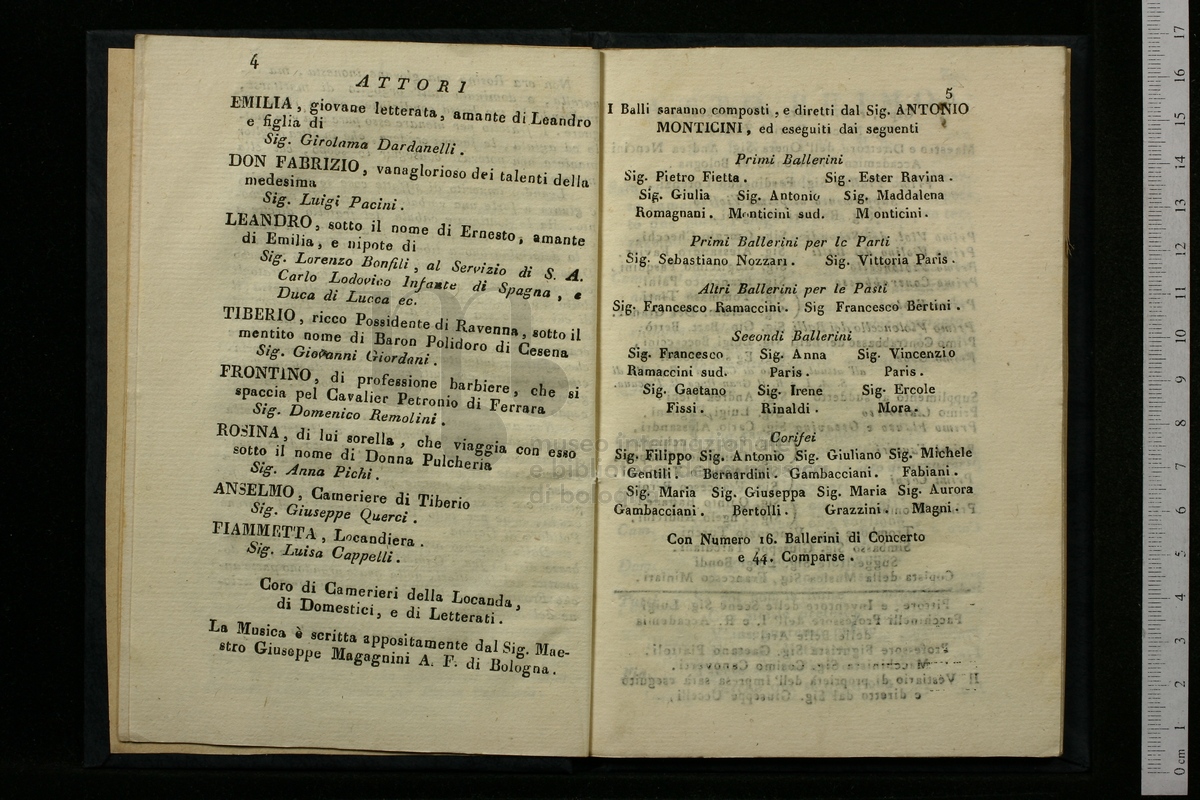 4
ATTORI
EMILIA, giovane letterata, amante di Leandro
e figlia di
Sig. Girolama Dardanelli.
DON FABRIZIO, vanaglorioso dei talenti della
medesima
Sig. Luigi Pacini.
LEANDRO, sotto il nome di Ernesto, amante
di Emilia, e nipote di
Sig. Lorenzo Bonfili, al Servizio di S. A.
Carlo Lodovico Infante di Spagna, e
Duca di Lucca ec.
TIBERIO, ricco Possidente di Ravenna, sotto il
mentito nome di Baron Polidoro di Cesena
Sig. Giovanni Giordani.
FRONTINO, di professione barbiere, che si
spaccia pel Cavalier Petronio di Ferrara
Sig. Domenico Remolini.
ROSINA, di lui sorella, che viaggia con esso
sotto il nome di Donna Pulcheria
Sig. Anna Pichi.
ANSELMO, Cameriere di Tiberio
Sig. Giuseppe Querci.
FIAMMETTA, Locandiera.
Sig. Luisa Cappelli.
Coro di Camerieri della Locanda,
di Domestici, e di Letterati.
La Musica è scritta appositamente dal Sig. Mae-
stro Giuseppe Magagnini A. F. di Bologna.
5
I Balli saranno composti, e diretri dal Sig. ANTONIO
MONTICINI, ed eseguiti dai seguenti
Primi Ballerini
Sig. Pietro Fietta. Sig. Ester Ravina.
Sig. Giulia Sig. Antonio Sig. Maddalena
Romagnani. Monticini sud. Monticini.
Primi Ballerini per le Parti
Sig. Sebastiano Nozzari. Sig. Vittoria Paris.
Altri Ballerini per le Pasti
Sig. Francesco Ramaccini. Sig Francesco Bertini.
Seeondi Ballerini
Sig. Francesco Sig. Anna Sig. Vincenzio
Ramaccini sud. Paris. Paris.
Sig. Gaetano Sig. Irene Sig. Ercole
Fissi. Rinaldi. Mora.
Corifei
Sig. Filippo Sig. Antonio Sig. Giuliano Sig. Michele
Gentili. Bernardini. Gambacciani. Fabiani.
Sig. Maria Sig. Giuseppa Sig. Maria Sig. Aurora
Gambacciani. Bertolli. Grazzini. Magni.
Con Numero 16. Ballerini di Concerto
e 44. Comparse.
museo internazionale
e biblioteca de
di bolo
0 cm 1 2 3 4 5 6 7 8 9 10 11 12 13 14 15 16 17